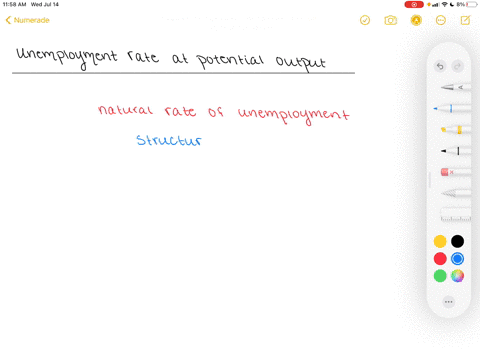 11:58 AM Wed Jul 14
8%
Numerade
unemployment rate at potential output
natural rate of unemployment
structur